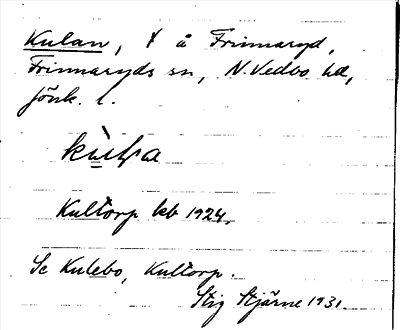 Kulan, å Frinnaryd,
Frinnaryds sn, N. Vedbo hd,
Jönk. l.
Kulltorp kb 1924.
Se Kulebo, Kulltorp.
Stig Stjärne 1931.